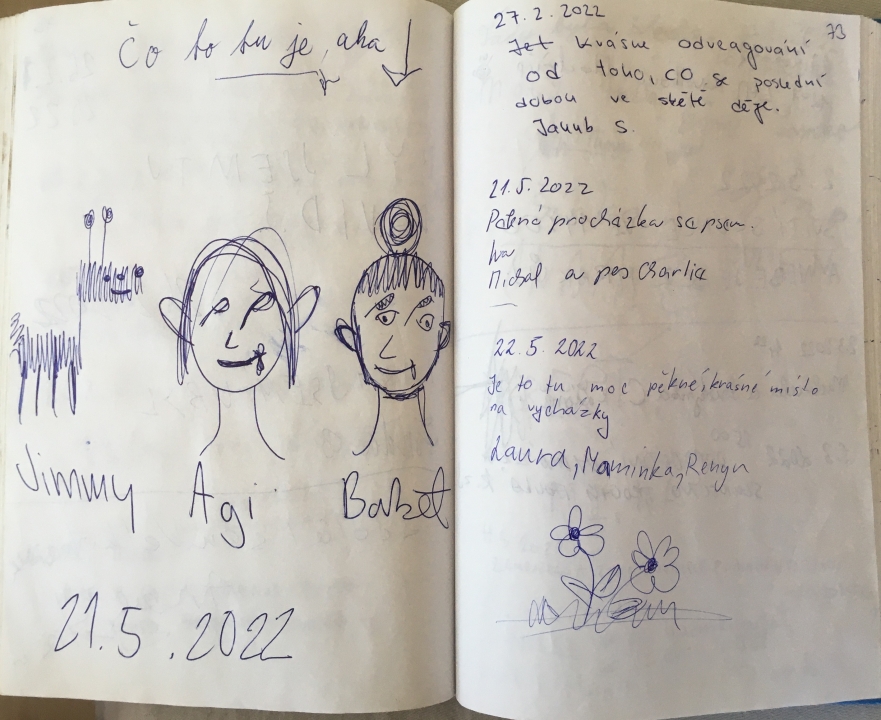 Čo to tu je, aha
Jimmy
Agi
21.5.2022
73
27.2.2022
Jet krásné odreagování
od toho, co se poslední
dobou ve světě děje.
Jakub S.
21.5.2022
procházka se psem.
Iva
Michal a pes Charlie
22.5.2022
Je to tu moc pěkné, krásné místo
na vycházky
Laura, Maminka,